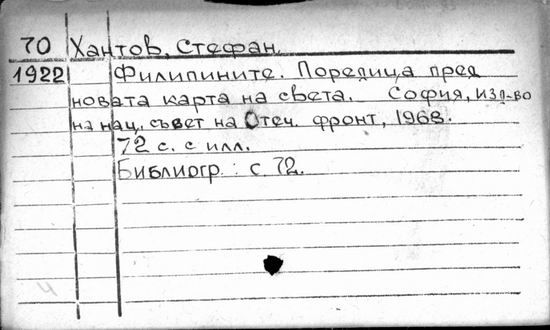 70 Хантов, Стефан.
1922 Филипините. Поредица пред
новата карта на света. София, изд-во
на нац. съвет на Отеч. фронт, 1968.
72 с. с илл.
Библиогр.: с 72.
4